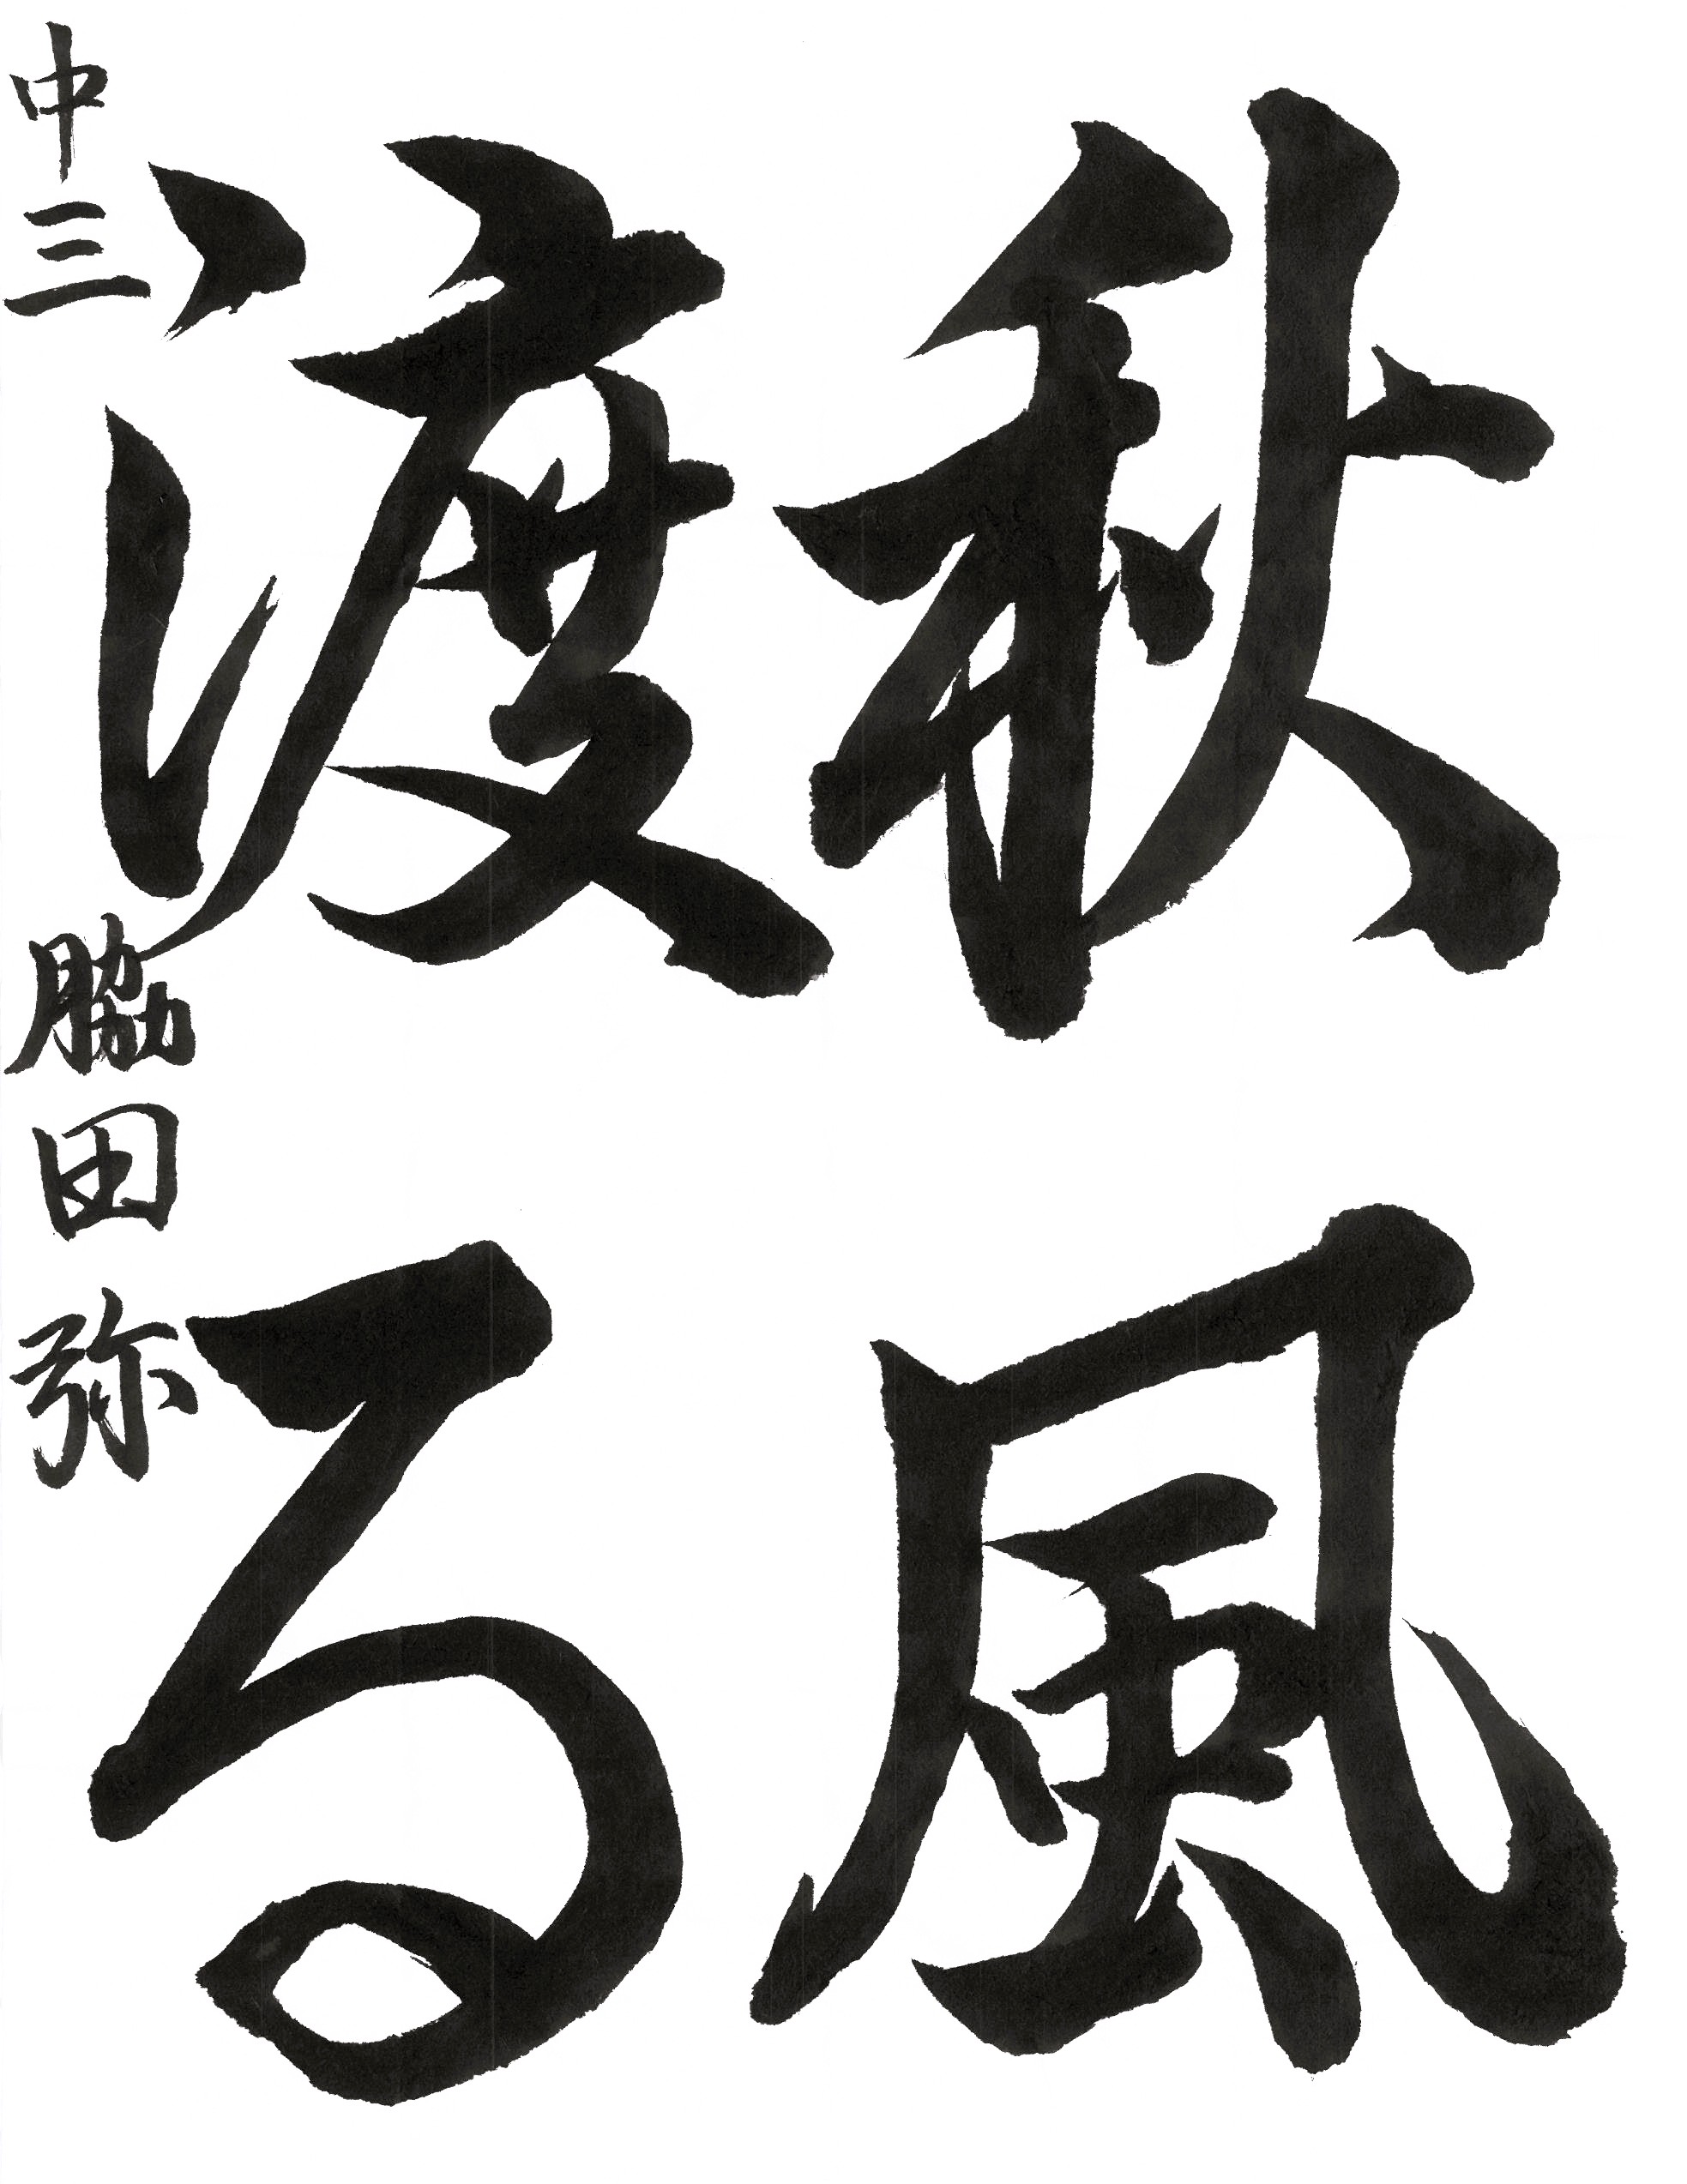 秋風
渡る
中三 脇田弥